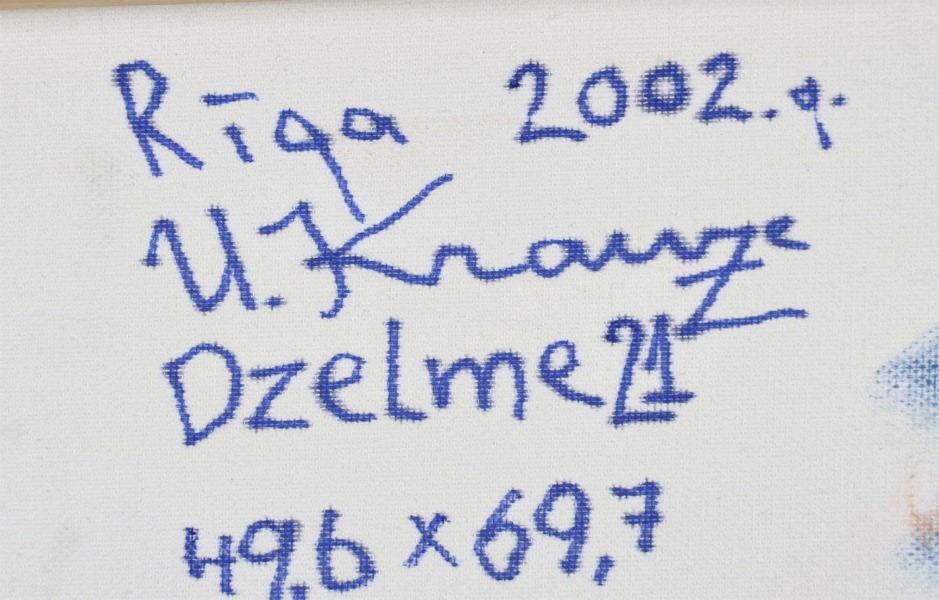 Rīga 2002.g.
U. Krauze
Dzelme 21
49,6 x 69,7